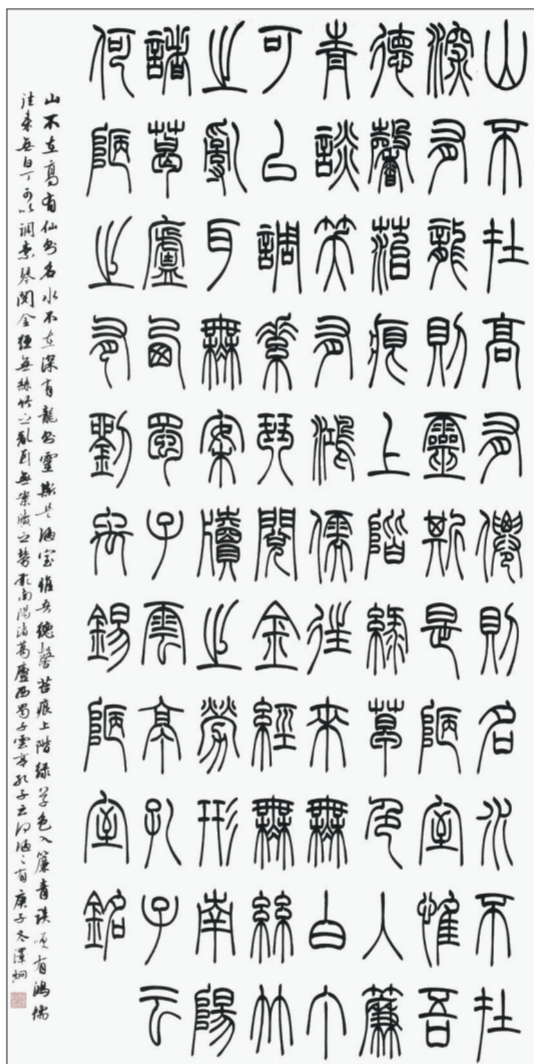 山不在高有僊則名水不在
深有龍則靈斯是陋室惟吾
德馨苔痕上階綠草色入簾
青談笑有鴻儒往來無白丁
可以調素琴閱金經無絲竹
之亂耳無案牘之勞形南陽
諸葛廬西蜀子雲亭孔子云
何陋之有劉禹錫陋室銘
山不在高有仙則名水不在深有龍則靈斯是陋室惟吾德馨苔痕上階綠草色入簾青談笑有鴻儒
往來無白丁可以調素琴閱金經無絲竹之亂耳無案牘之勞形南陽諸葛廬西蜀子雲亭孔子云何陋之有庚子冬澤炯